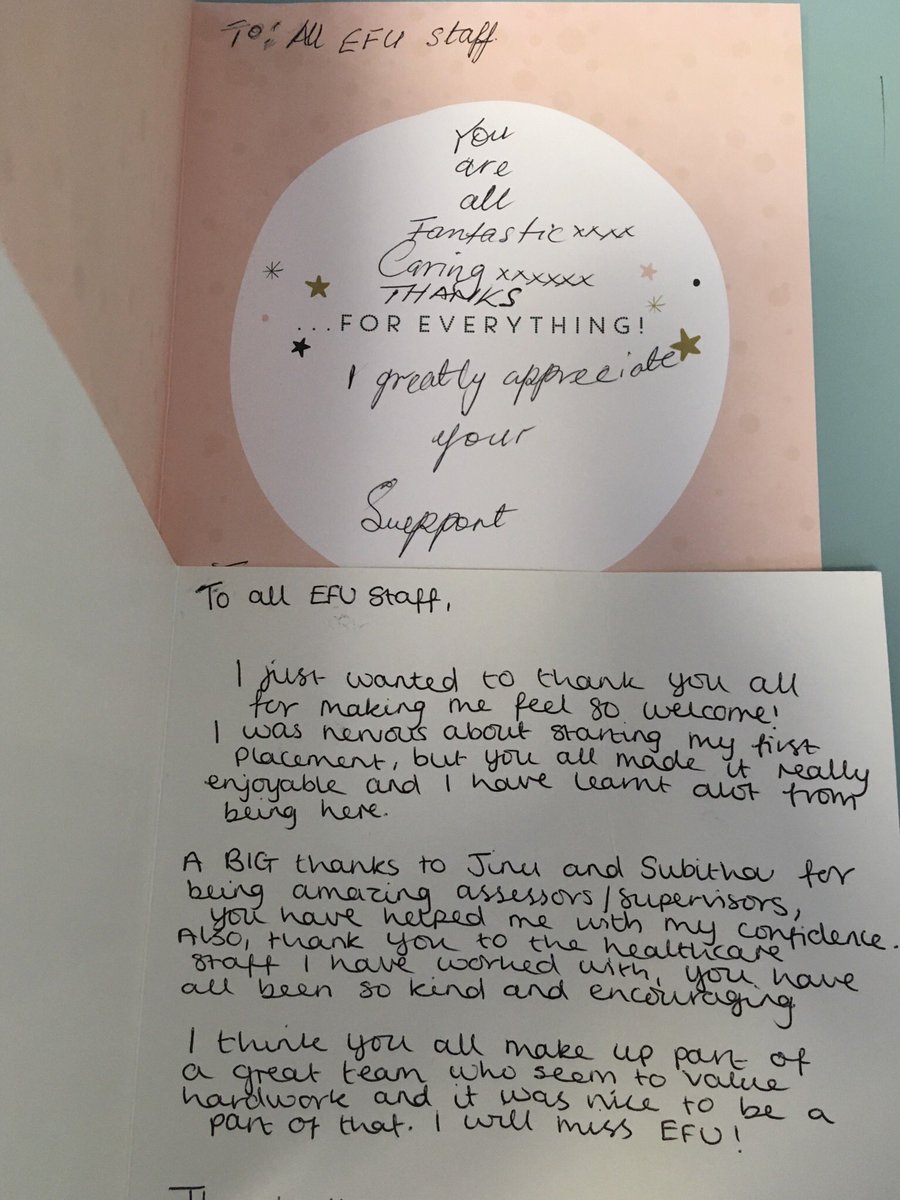 To: All EFU staff.
You
are
all
Fantastic xxxx
Caring xxxxxx
THANKS
...FOR EVERYTHING!
I greatly appreciate
your
Support
To all EFU Staff,
I just wanted to thank you all
for making me feel so welcome!
I was nervous about starting my first
placement, but you all made it really
enjoyable and I have learnt alot from
being here.
A BIG thanks to Jinu and Subitha for
being amazing assessors/supervisors,
you have helped me with my confidence.
Also, thank you to the healthcare
staff I have worked with, you have
all been so kind and encouraging
I think you all make up part of
a great team who seem to value
hardwork and it was nice to be a
part of that. I will miss EFU!